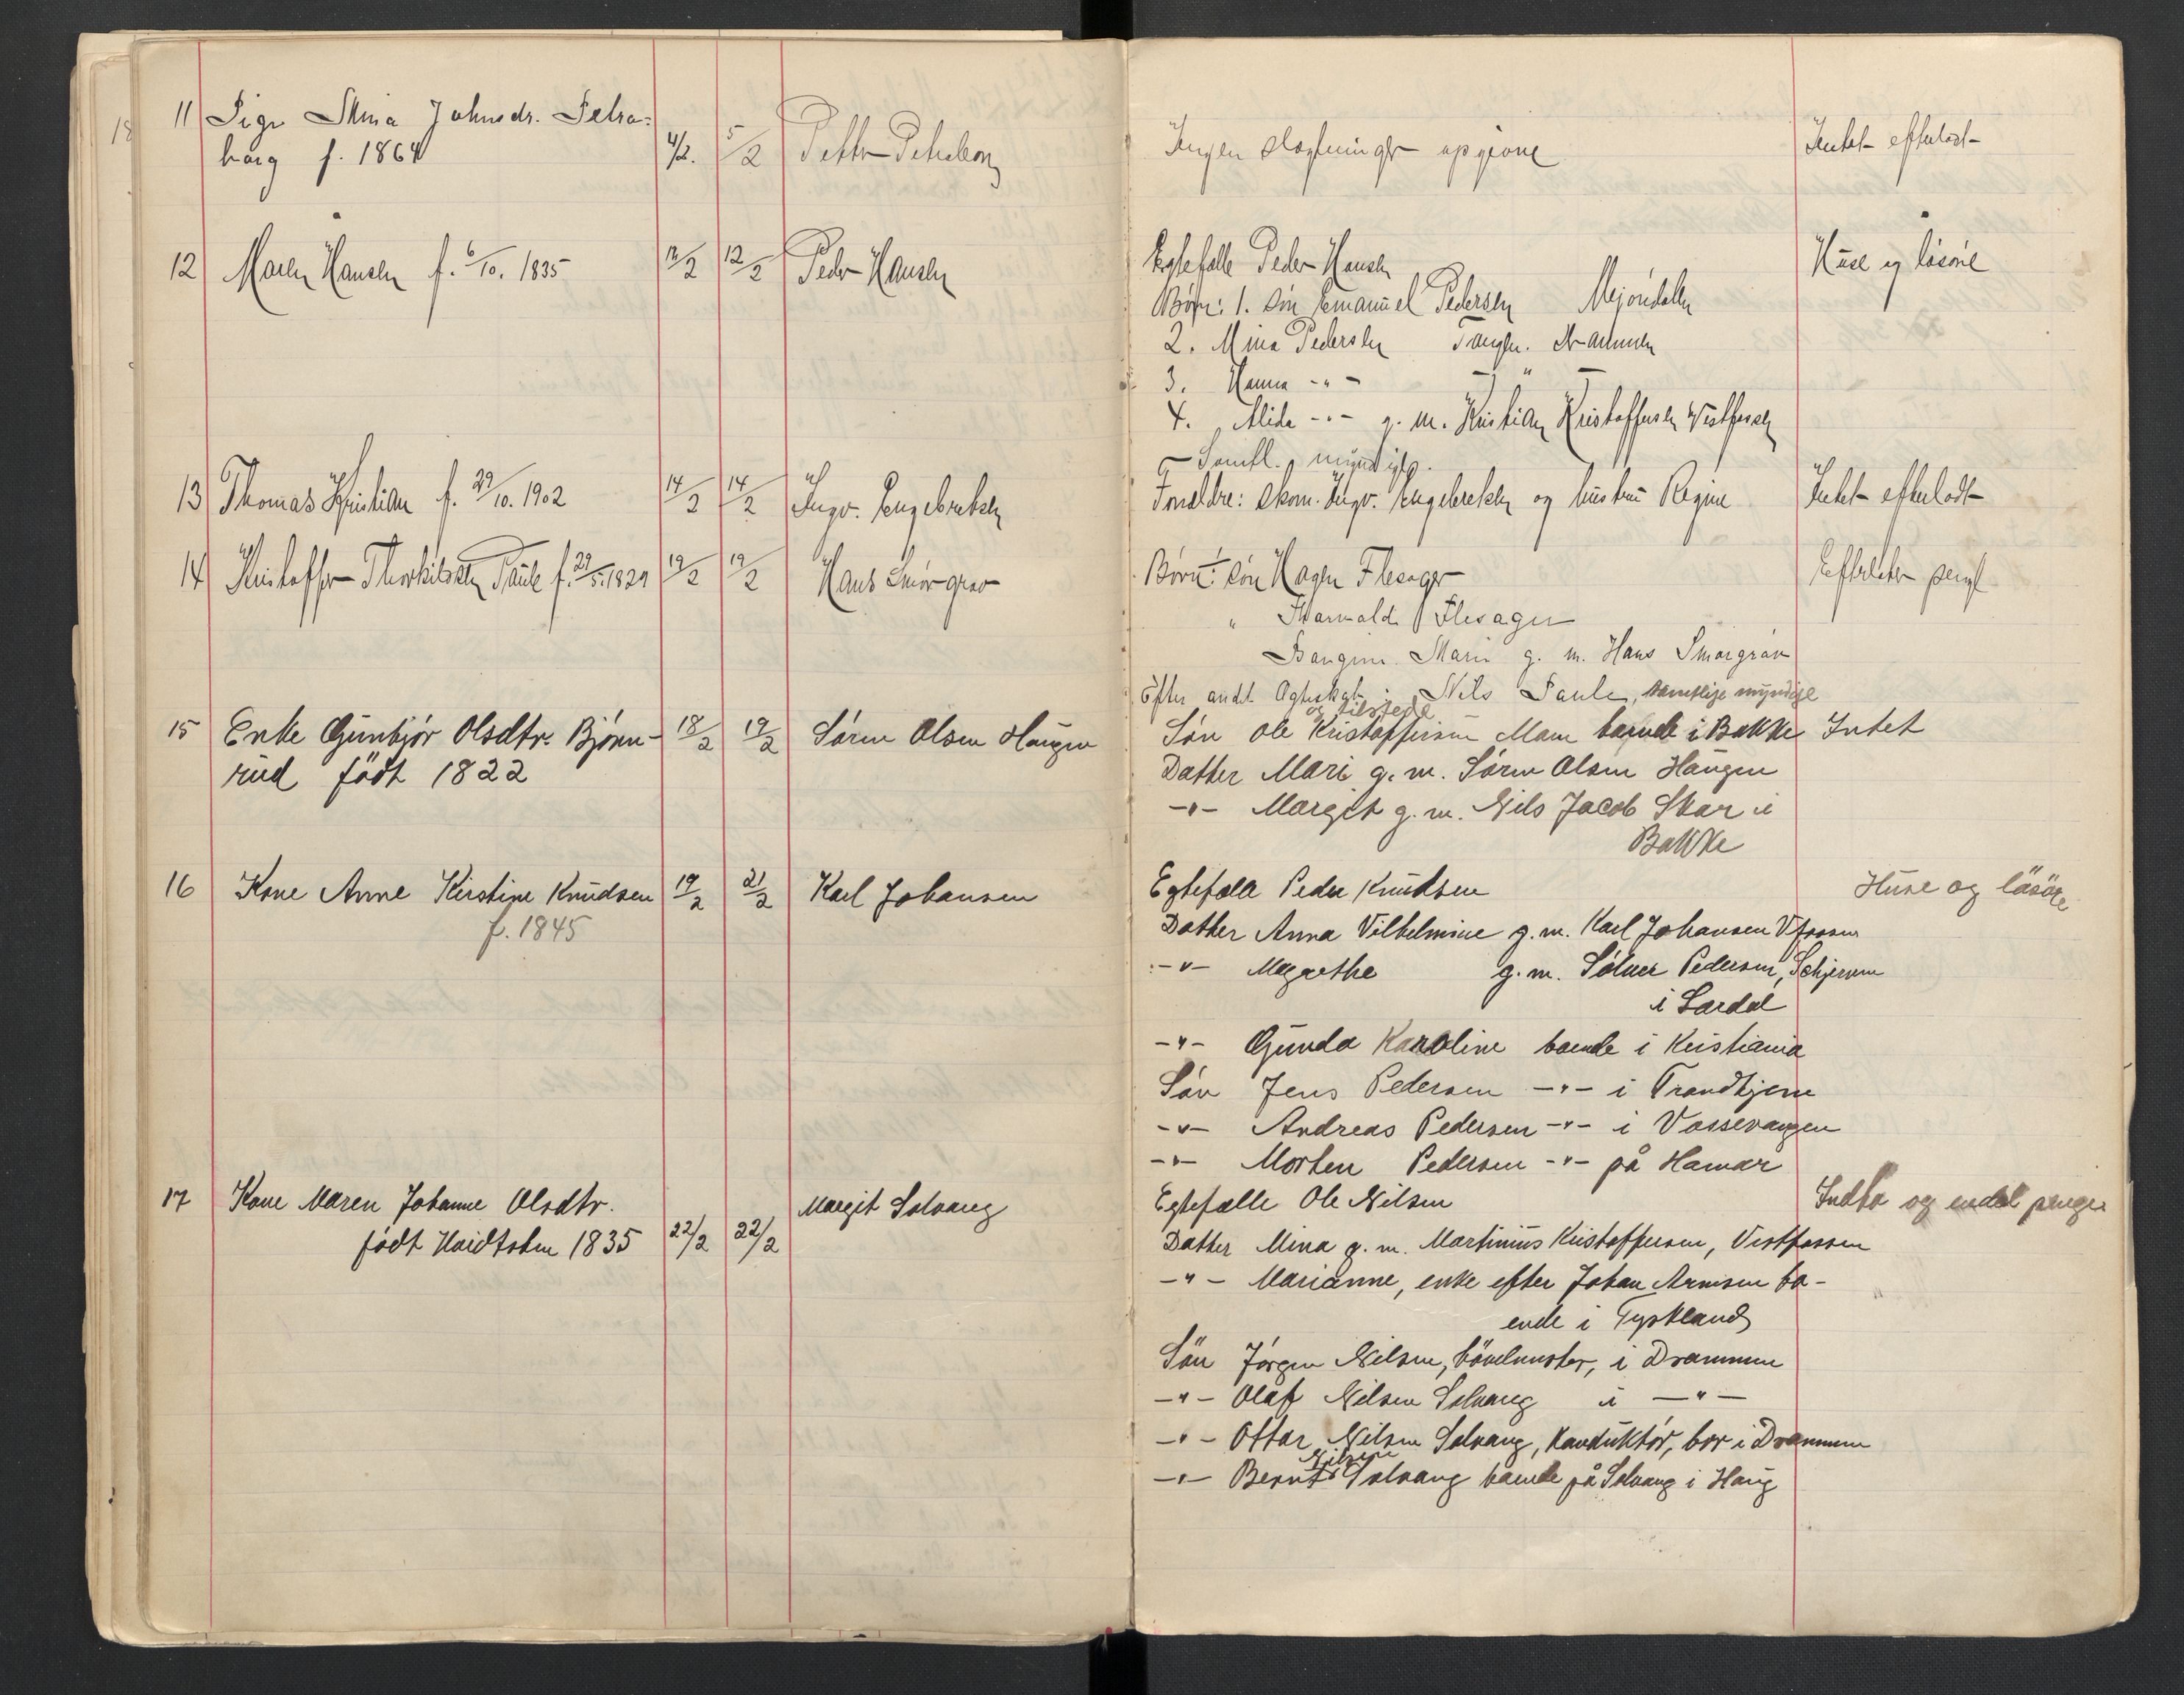 18
11 Pige Stina Johnsdr. Petra-
borg f. 1864 4/2. 5/2 Petter Petraborg
Ingen slægtninger opgivne
Intet efterladt
12 Maren Hansen f. 6/10. 1835 12/2 12/2 Peder Hansen
Egtefælle Peder Hansen
Huse og løsøre
Børn: 1. Søn Emanuel Pedersen Mjøndalen
2. Mina Pedersen Tangen. Drammen
3. Hanna -"- - " -
4. Alida -"- g. m. Kristian Kristoffersen Vestfossen
Samtl. myndige.
13 Thomas Kristian f. 29/10. 1902 14/2 14/2 Ingv. Engebretsen
Forældre: Skom. Ingv. Engebretsen og hustru Regine
Intet efterladt
14 Kristoffer Thorkildsen Paule f. 1829 19/2 19/2 Hans Smørgrav
Børn: Søn Hagen Flesager
Efterlater penge
" Harvald Flesager
Mari g. m. Hans Smørgrav
Efter andet Ægteskab: Nils Paule, samtlige myndige
og tilstede
15 Enke Gunbjør Olsdtr. Bjørn- 18/2 19/2 Søren Olsen Haugen
rud født 1822
Søn Ole Kristoffersen Moen boende i Bakke
Intet
Datter Mari g. m. Søren Olsen Haugen
-"- Margit g. m. Nils Jacob Skar i
Bakke
16 Kone Anne Kirstine Knudsen 19/2 21/2 Karl Johansen
f. 1845
Egtefælle Peder Knudsen
Huse og løsøre
Datter Anna Vilhelmine g. m. Karl Johansen Vfossen
-"- Magrethe g. m. Sølver Pedersen, Schjerven
i Lardal
-"- Gunda Karoline boende i Kristiania
Søn Jens Pedersen -"- i Trondhjem
-"- Andreas Pedersen -"- i Vossevangen
-"- Morten Pedersen -"- på Hamar
17 Kone Maren Johanne Olsdtr. Margit Solvang
født Hoidtsten 1835 22/2 22/2
Egtefælle Ole Nilsen
Indbo og endel penger
Datter Mina g. m. Martinius Kristoffersen, Vestfossen
-"- Marianne, enke efter Johan Arnesen bo-
ende i Tyskland
Søn Jørgen Nilsen, i Drammen
-"- Olaf Nilsen Solvang i -"-
-"- Ottar Nilsen Solvang, Konduktør, bor i Drammen
Nilsen
-"- Bernt Solvang boende på Solvang i Haug